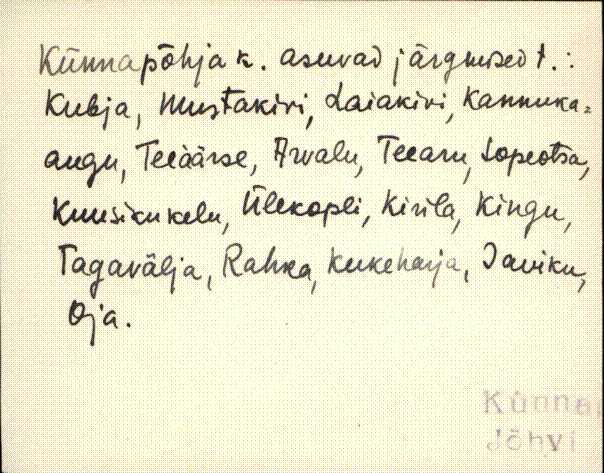 Künnapõhja k. asuvad järgmised t.:
Kubja, Mustakivi, Laiakivi, Kannuka=
augu, Teeäärse, Arvalu, Teearu, Lopeotsa,
Kuusikukelu, Ülekopli, Kirila, Kingu,
Tagavälja, Rahka, Kukeharja, Javiku,
Oja.
Künna
Jõhvi